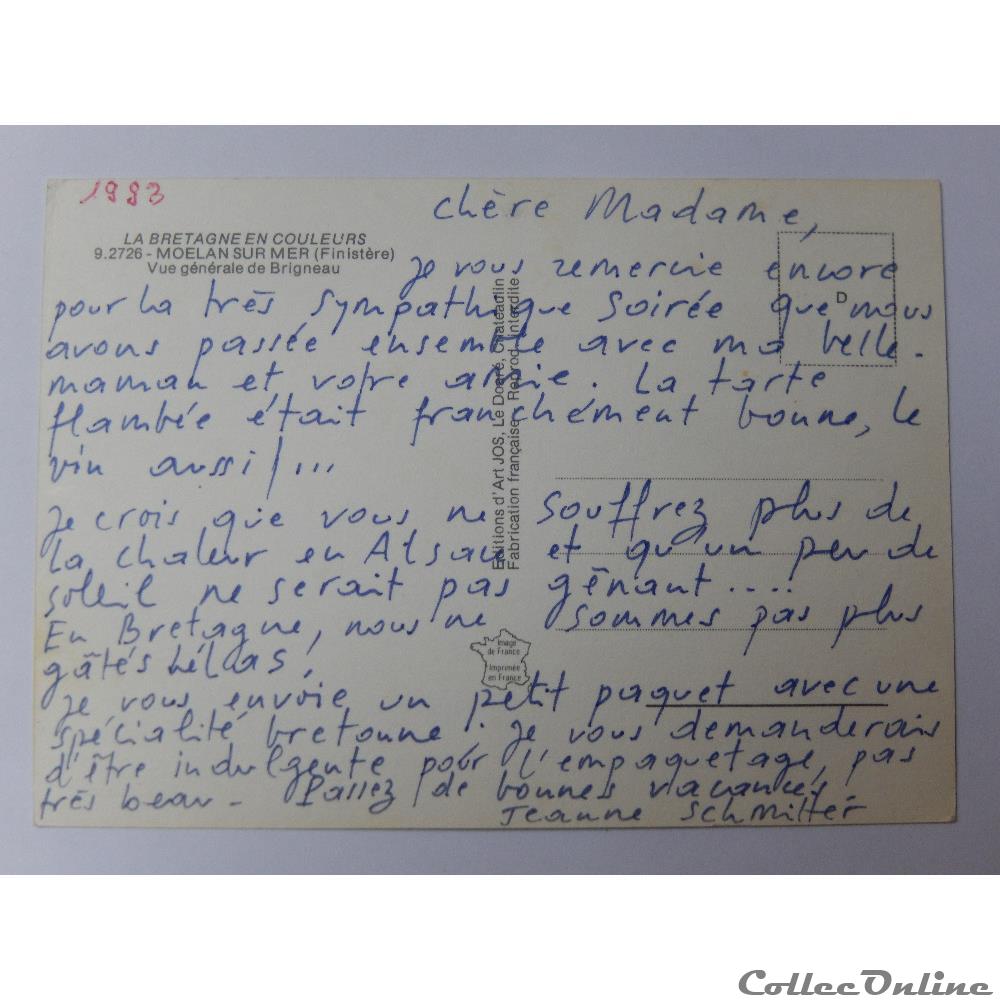 1993
chère Madame,
LA BRETAGNE EN COULEURS
9.2726 - MOELAN SUR MER (Finistère)
Vue générale de Brigneau
Je vous remercie encore
pour la très sympathique soirée que nous
avons passée ensemble avec ma belle-
maman et votre amie. La tarte
flambée était franchement bonne, le
vin aussi!...
Je crois que vous ne souffrez plus de
la chaleur en Alsace et qu'un peu de
soleil ne serait pas gênant....
En Bretagne, nous ne sommes pas plus
gâtés hélas,
Je vous envoie un petit paquet avec une
spécialité bretonne. Je vous demanderais
d'être indulgente pour l'empaquetage, pas
très beau - Passez de bonnes vacances
Jeanne
D
Editions d'Art JOS, Le Doaré, Châteaulin
Fabrication française - Reprod. interdite
Image
de France
Imprimée
en France
CollecOnline